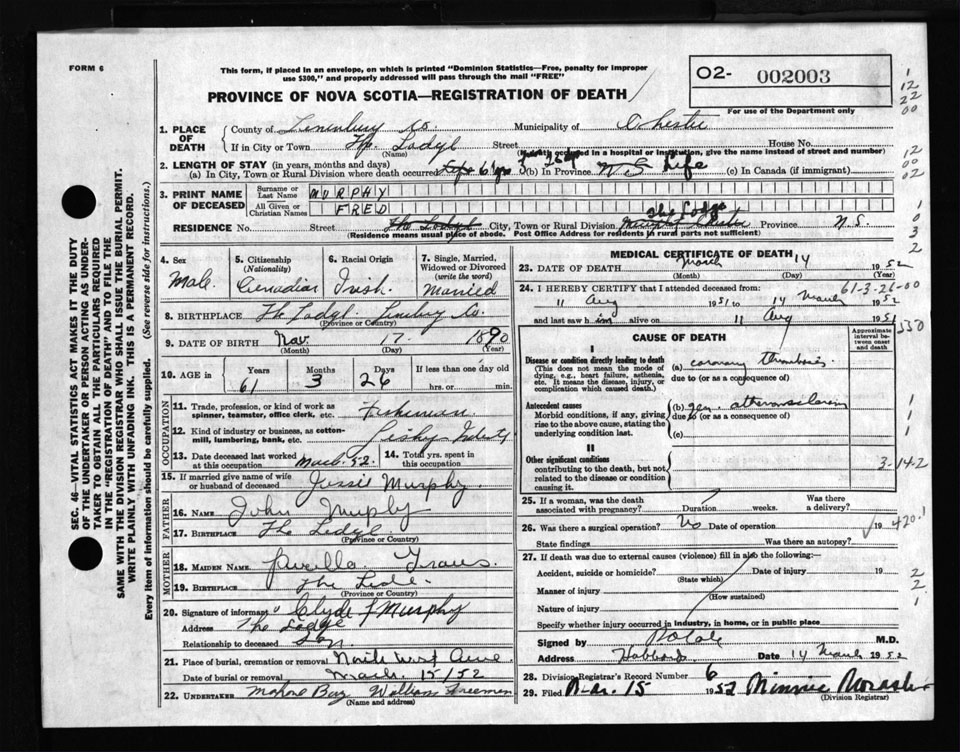 FORM 6
This form, if placed in an envelope, on which is printed "Dominion Statistics—Free, penalty for improper
use $300," and properly addressed will pass through the mail "FREE"
PROVINCE OF NOVA SCOTIA—REGISTRATION OF DEATH
O2- 002003
For use of the Department only
1. PLACE OF DEATH
County of Lunenburg Co. Municipality of Chester
If in City or Town Street House No.
(Name) (If death occurred in a hospital or institution, give the name instead of street and number)
2. LENGTH OF STAY (in years, months and days)
(a) In City, Town or Rural Division where death occurred (b) In Province N S Life (c) In Canada (if immigrant)
3. PRINT NAME OF DECEASED
Surname or Last Name MURPHY
All Given or Christian Names FRED
RESIDENCE No. Street City, Town or Rural Division The Lodge Province N.S.
(Residence means usual place of abode. Post Office Address for residents in rural parts not sufficient)
4. Sex Male
5. Citizenship (Nationality) Canadian
6. Racial Origin Irish
7. Single, Married, Widowed or Divorced (write the word) Married
8. BIRTHPLACE Co.
(Province or Country)
9. DATE OF BIRTH Nov. 17 1890
(Month) (Day) (Year)
10. AGE in Years Months Days If less than one day old
61 3 26 hrs. or min.
OCCUPATION
11. Trade, profession, or kind of work as spinner, teamster, office clerk, etc. Fisherman
12. Kind of industry or business, as cotton-mill, lumbering, bank, etc.
13. Date deceased last worked at this occupation March 52
14. Total yrs. spent in this occupation
15. If married give name of wife or husband of deceased Jessie Murphy
FATHER
16. NAME John Murphy
17. BIRTHPLACE The
(Province or Country)
MOTHER
18. MAIDEN NAME
19. BIRTHPLACE The
(Province or Country)
20. Signature of informant Clyde F Murphy
Address The Lodge
Relationship to deceased Son
21. Place of burial, cremation or removal North West
Date of burial or removal March 15/52
22. UNDERTAKER Mahone Bay William Freeman
(Name and address)
MEDICAL CERTIFICATE OF DEATH
23. DATE OF DEATH March 14 1952
(Month) (Day) (Year)
24. I HEREBY CERTIFY that I attended deceased from: 61-3-26-00
11 Aug 1951 to 14 March 1952
and last saw him alive on 11 Aug 1951
CAUSE OF DEATH
Approximate interval between onset and death
I
Disease or condition directly leading to death
(This does not mean the mode of dying, e.g., heart failure, asthenia, etc. It means the disease, injury, or complication which caused death.)
(a) coronary thrombosis
due to (or as a consequence of)
Antecedent causes
Morbid conditions, if any, giving rise to the above cause, stating the underlying condition last.
(b) gen. atherosclerosis
due to (or as a consequence of)
(c)
II
Other significant conditions
contributing to the death, but not related to the disease or condition causing it.
3-14-2
25. If a woman, was the death associated with pregnancy? Duration weeks. Was there a delivery?
26. Was there a surgical operation? No Date of operation 19
State findings Was there an autopsy?
420.1
27. If death was due to external causes (violence) fill in also the following:—
Accident, suicide or homicide? Date of injury 19
(State which)
Manner of injury
(How sustained)
Nature of injury
Specify whether injury occurred in industry, in home, or in public place
Signed by M.D.
Address Hubbards Date 14 March 1952
28. Division Registrar's Record Number 6
29. Filed Mar. 15 1952 Minnie
(Division Registrar)
SEC. 46—VITAL STATISTICS ACT MAKES IT THE DUTY
OF THE UNDERTAKER OR PERSON ACTING AS UNDER-
TAKER TO OBTAIN ALL THE PARTICULARS REQUIRED
IN THE "REGISTRATION OF DEATH" AND TO FILE THE
SAME WITH THE DIVISION REGISTRAR WHO SHALL ISSUE THE BURIAL PERMIT.
WRITE PLAINLY WITH UNFADING INK. THIS IS A PERMANENT RECORD.
Every item of information should be carefully supplied. (See reverse side for instructions.)